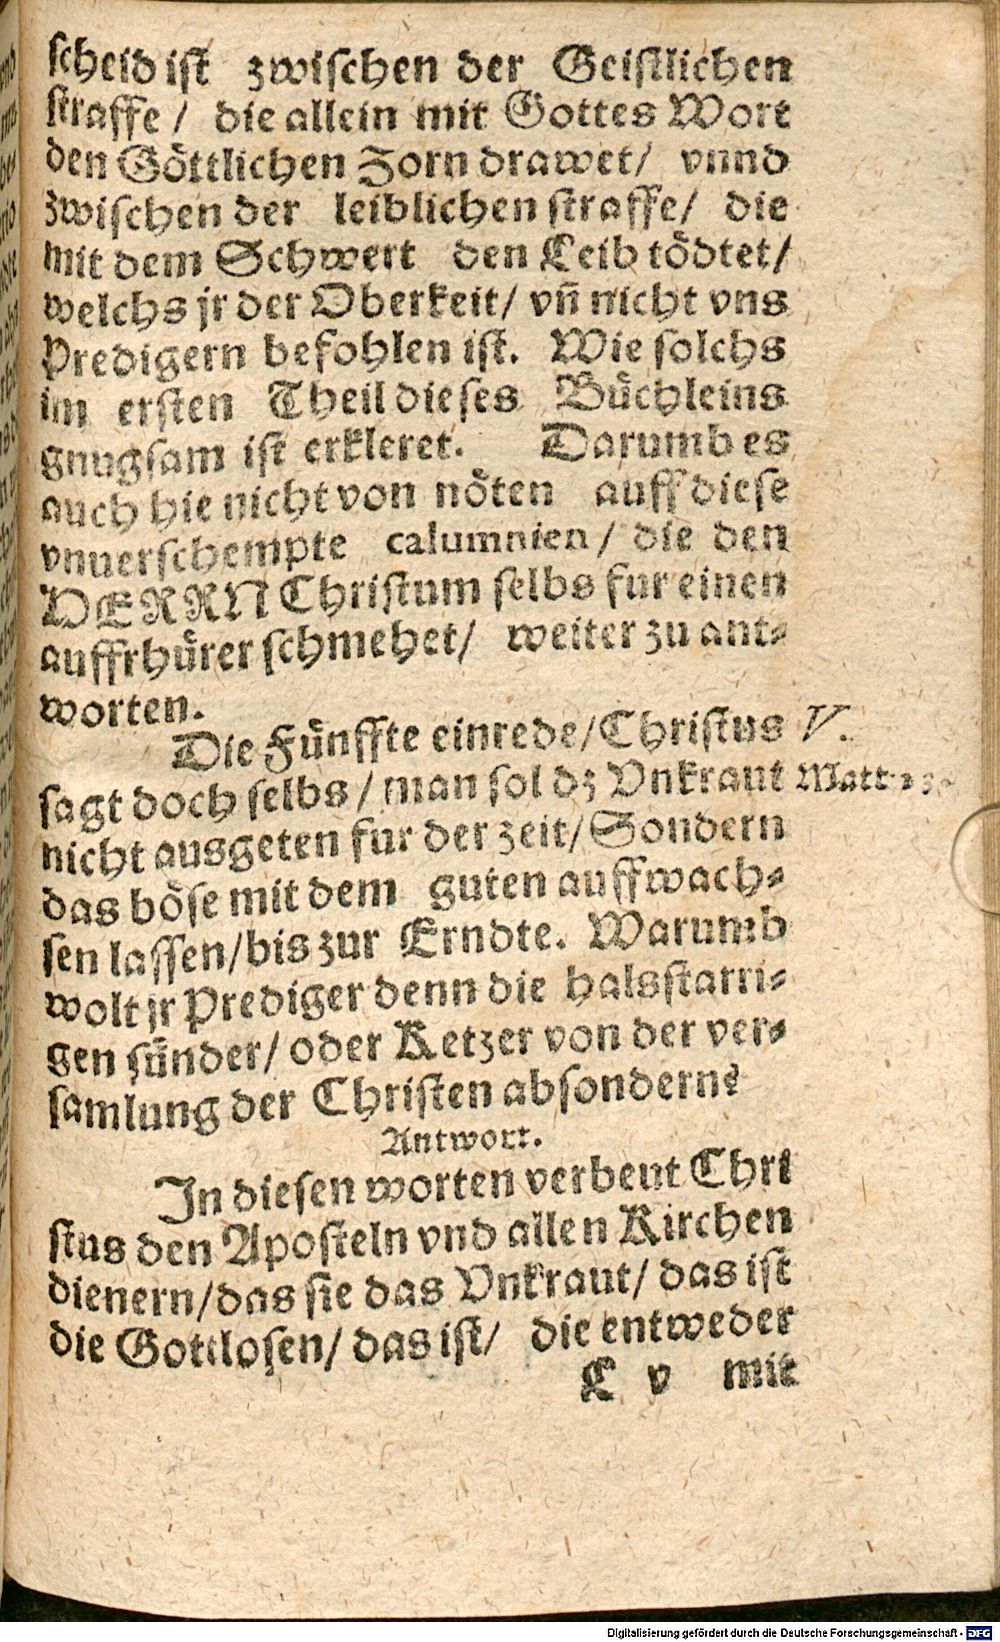 scheid ist zwischen der Geistlichen
straffe / die allein mit Gottes Wort
den Göttlichen Zorn drawet / vnnd
zwischen der leiblichen straffe / die
mit dem Schwert den Leib tödtet /
welchs jr der Oberkeit / vn̄ nicht vns
Predigern befohlen ist. Wie solchs
im ersten Theil dieses Büchleins
gnugsam ist erkleret. Darumb es
auch hie nicht von nöten auff diese
vnuerschempte calumnien / die den
HERRN Christum selbs fur einen
auffrhürer schmehet / weiter zu ant-
worten.
Die Fünffte einrede / Christus V.
sagt doch selbs / man sol dz Vnkraut Matt. 13.
nicht ausgeten fur der zeit / Sondern
das böse mit dem guten auffwach-
sen lassen / bis zur Erndte. Warumb
wolt jr Prediger denn die halsstarri-
gen sünder / oder Ketzer von der ver-
samlung der Christen absondern?
Antwort.
In diesen worten verbeut Chri
stus den Aposteln vnd allen Kirchen
dienern / das sie das Vnkraut / das ist
die Gottlosen / das ist / die entweder
L v mit
Digitalisierung gefördert durch die Deutsche Forschungsgemeinschaft - DFG